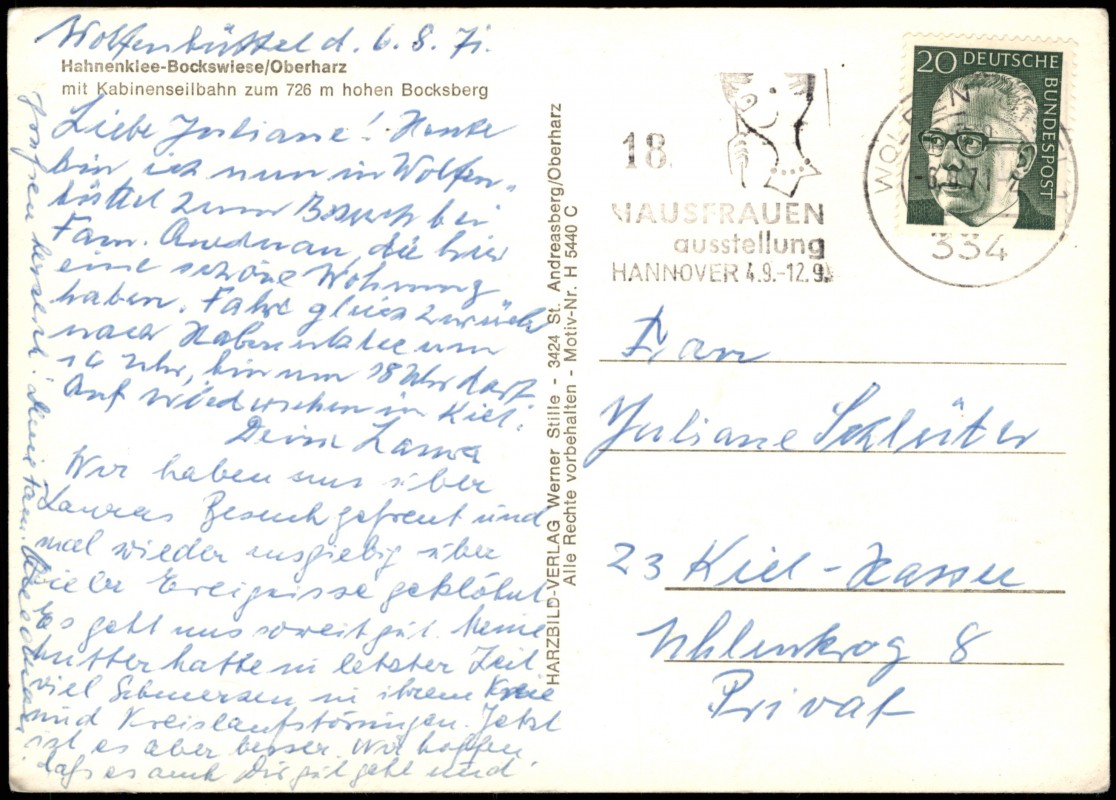 Wolfenbüttel d. 6. 8. 71.
Hahnenklee-Bockswiese/Oberharz
mit Kabinenseilbahn zum 726 m hohen Bocksberg
Liebe Juliane! Heute
bin ich nun in Wolfen-
büttel zum Besuch bei
Fam. die hier
eine schöne Wohnung
haben. Fahre gleich zurück
nach Hahnenklee um
16 Uhr, bin um 18 Uhr dort.
Auf Wiedersehen in Kiel.
Deine Laura
Wir haben uns über
Lauras Besuch gefreut und
mal wieder ausgiebig über
viele Ereignisse geklöhnt.
Es geht uns soweit gut. Meine
Mutter hatte in letzter Zeit
viel Schmerzen in ihrem Knie
und Kreislaufstörungen. Jetzt
ist es aber besser. Wir hoffen,
daß es auch Dir gut geht und
grüßen herzlich! Deine Fam.
HARZBILD-VERLAG Werner Stille - 3424 St. Andreasberg/Oberharz
Alle Rechte vorbehalten - Motiv-Nr. H 5440 C
18.
HAUSFRAUEN
ausstellung
HANNOVER 4.9.-12.9.
20 DEUTSCHE
BUNDESPOST
334
Frau
Juliane Schlüter
23 Kiel-Hassee
Uhlenkrog 8
Privat